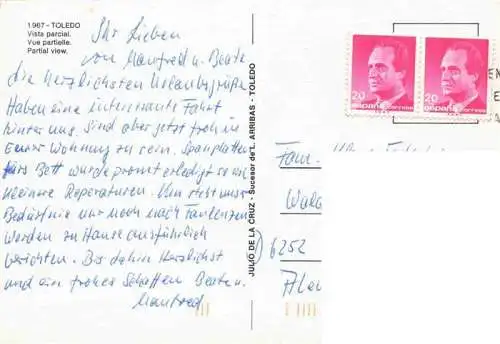 1.967 - TOLEDO
Vista parcial.
Vue partielle.
Partial view.
Ihr Lieben
von Manfred u. Beate
die herzlichsten Urlaubsgrüße
Haben eine interessante Fahrt
hinter uns. Sind aber jetzt froh in
Eurer Wohnung zu sein. Spanplatten
fürs Bett wurde promt erledigt so wie
kleinere Reperaturen. Nun steht unser
Bedürfnis nur noch nach Faulenzen
Werden zu Hause ausführlich
berichten. Bis dahin Herzlichst
und ein frohes Schaffen Beate u.
Manfred
JULIO DE LA CRUZ - Sucesor de L. ARRIBAS - TOLEDO
20
españa correos
20
españa correos
Fam.
6252